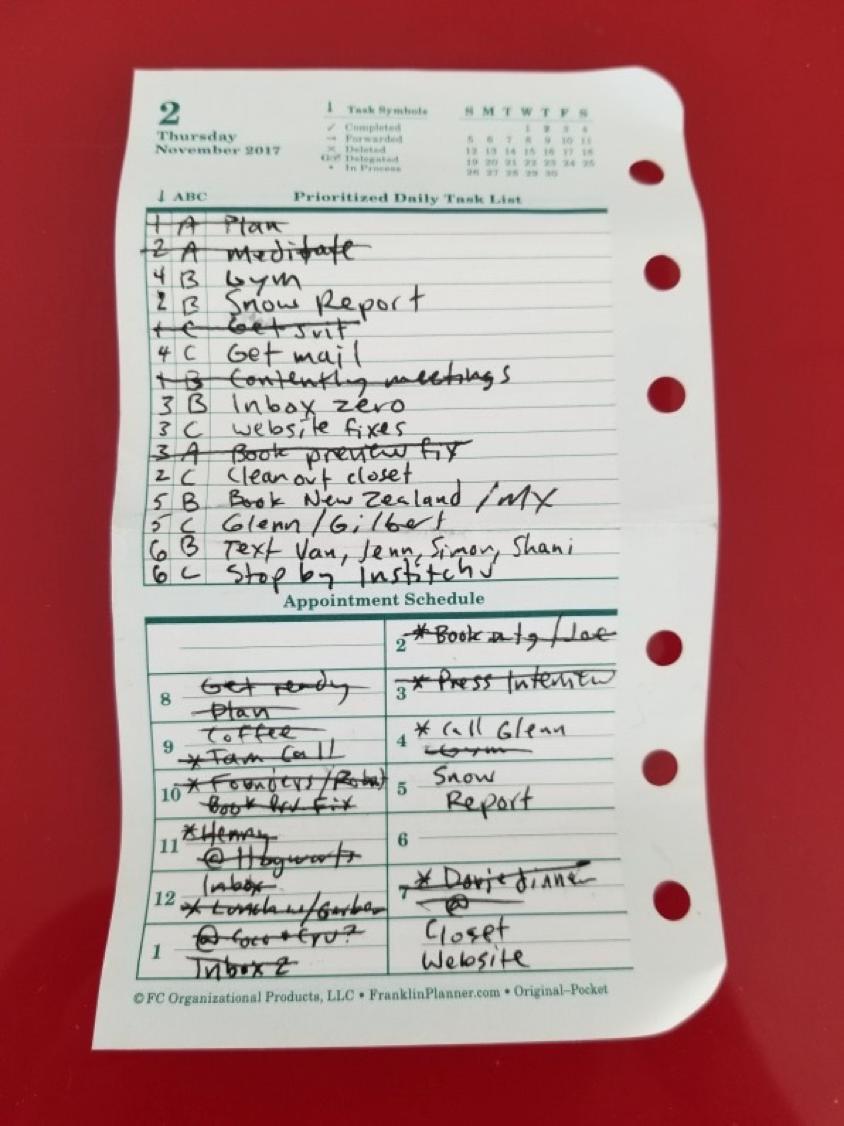 2
Thursday
November 2017
↓ Task Symbols
✓ Completed
→ Forwarded
× Deleted
Delegated
• In Process
S M T W T F S
1 2 3 4
5 6 7 8 9 10 11
12 13 14 15 16 17 18
19 20 21 22 23 24 25
26 27 28 29 30
↓ ABC Prioritized Daily Task List
1 A Plan
2 A Meditate
4 B Gym
2 B Snow Report
1 C Get suit
4 C Get mail
1 B Contently meetings
3 B Inbox zero
3 C Website fixes
3 A Book preview fix
2 C Clean out closet
5 B Book New Zealand / MX
5 C Glenn / Gilbert
6 B Text Van, Jenn, Simon, Shani
6 C Stop by Institchu
Appointment Schedule
8 Get ready
Plan
9 Coffee
* Tam Call
10 * Founders /
Book Prv Fix
11 * Henry
@ Hogwarts
12 Inbox
* Lunch w/
1 @ Coco + Cru?
Inbox Z
2 * Book mtg / Joe
3 * Press Interview
4 * Call Glenn
Gym
5 Snow
Report
6
7 * dinner
@
Closet
Website
© FC Organizational Products, LLC • FranklinPlanner.com • Original–Pocket